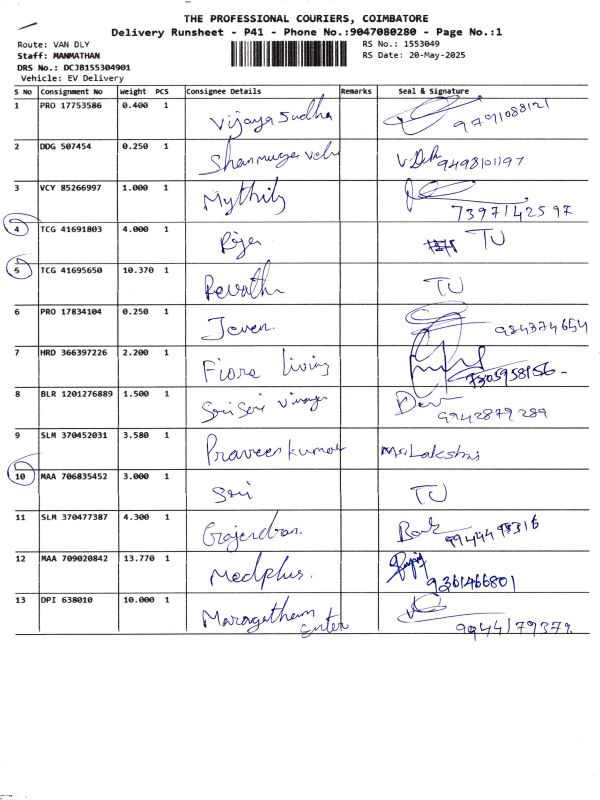 THE PROFESSIONAL COURIERS, COIMBATORE
Delivery Runsheet - P41 - Phone No.:9047080280 - Page No.:1
Route: VAN DLY
RS No.: 1553049
Staff: MANMATHAN
RS Date: 20-May-2025
DRS No.: DCJB155304901
Vehicle: EV Delivery
S NO Consignment No Weight PCS Consignee Details Remarks Seal & Signature
1 PRO 17753586 0.400 1 Vijaya Sudha 9791088121
2 DDG 507454 0.250 1 Shanmuga velu 9498101197
3 VCY 85266997 1.000 1 Mythily 7397142597
4 TCG 41691803 4.000 1 TU
5 TCG 41695650 10.370 1 Revathi TU
6 PRO 17834104 0.250 1 Jeven. 984374654
7 HRD 366397226 2.200 1 Fiora living 7305958156-
8 BLR 1201276889 1.500 1 Sri Sri vinaya 9942879289
9 SLM 370452031 3.580 1 Praveen kumar
10 MAA 706835452 3.000 1 Sri TU
11 SLM 370477387 4.300 1 Gajendran.
12 MAA 709020842 13.770 1 Medplus. 9361466801
13 DPI 638010 10.000 1 Maragatham Enter 994417937%